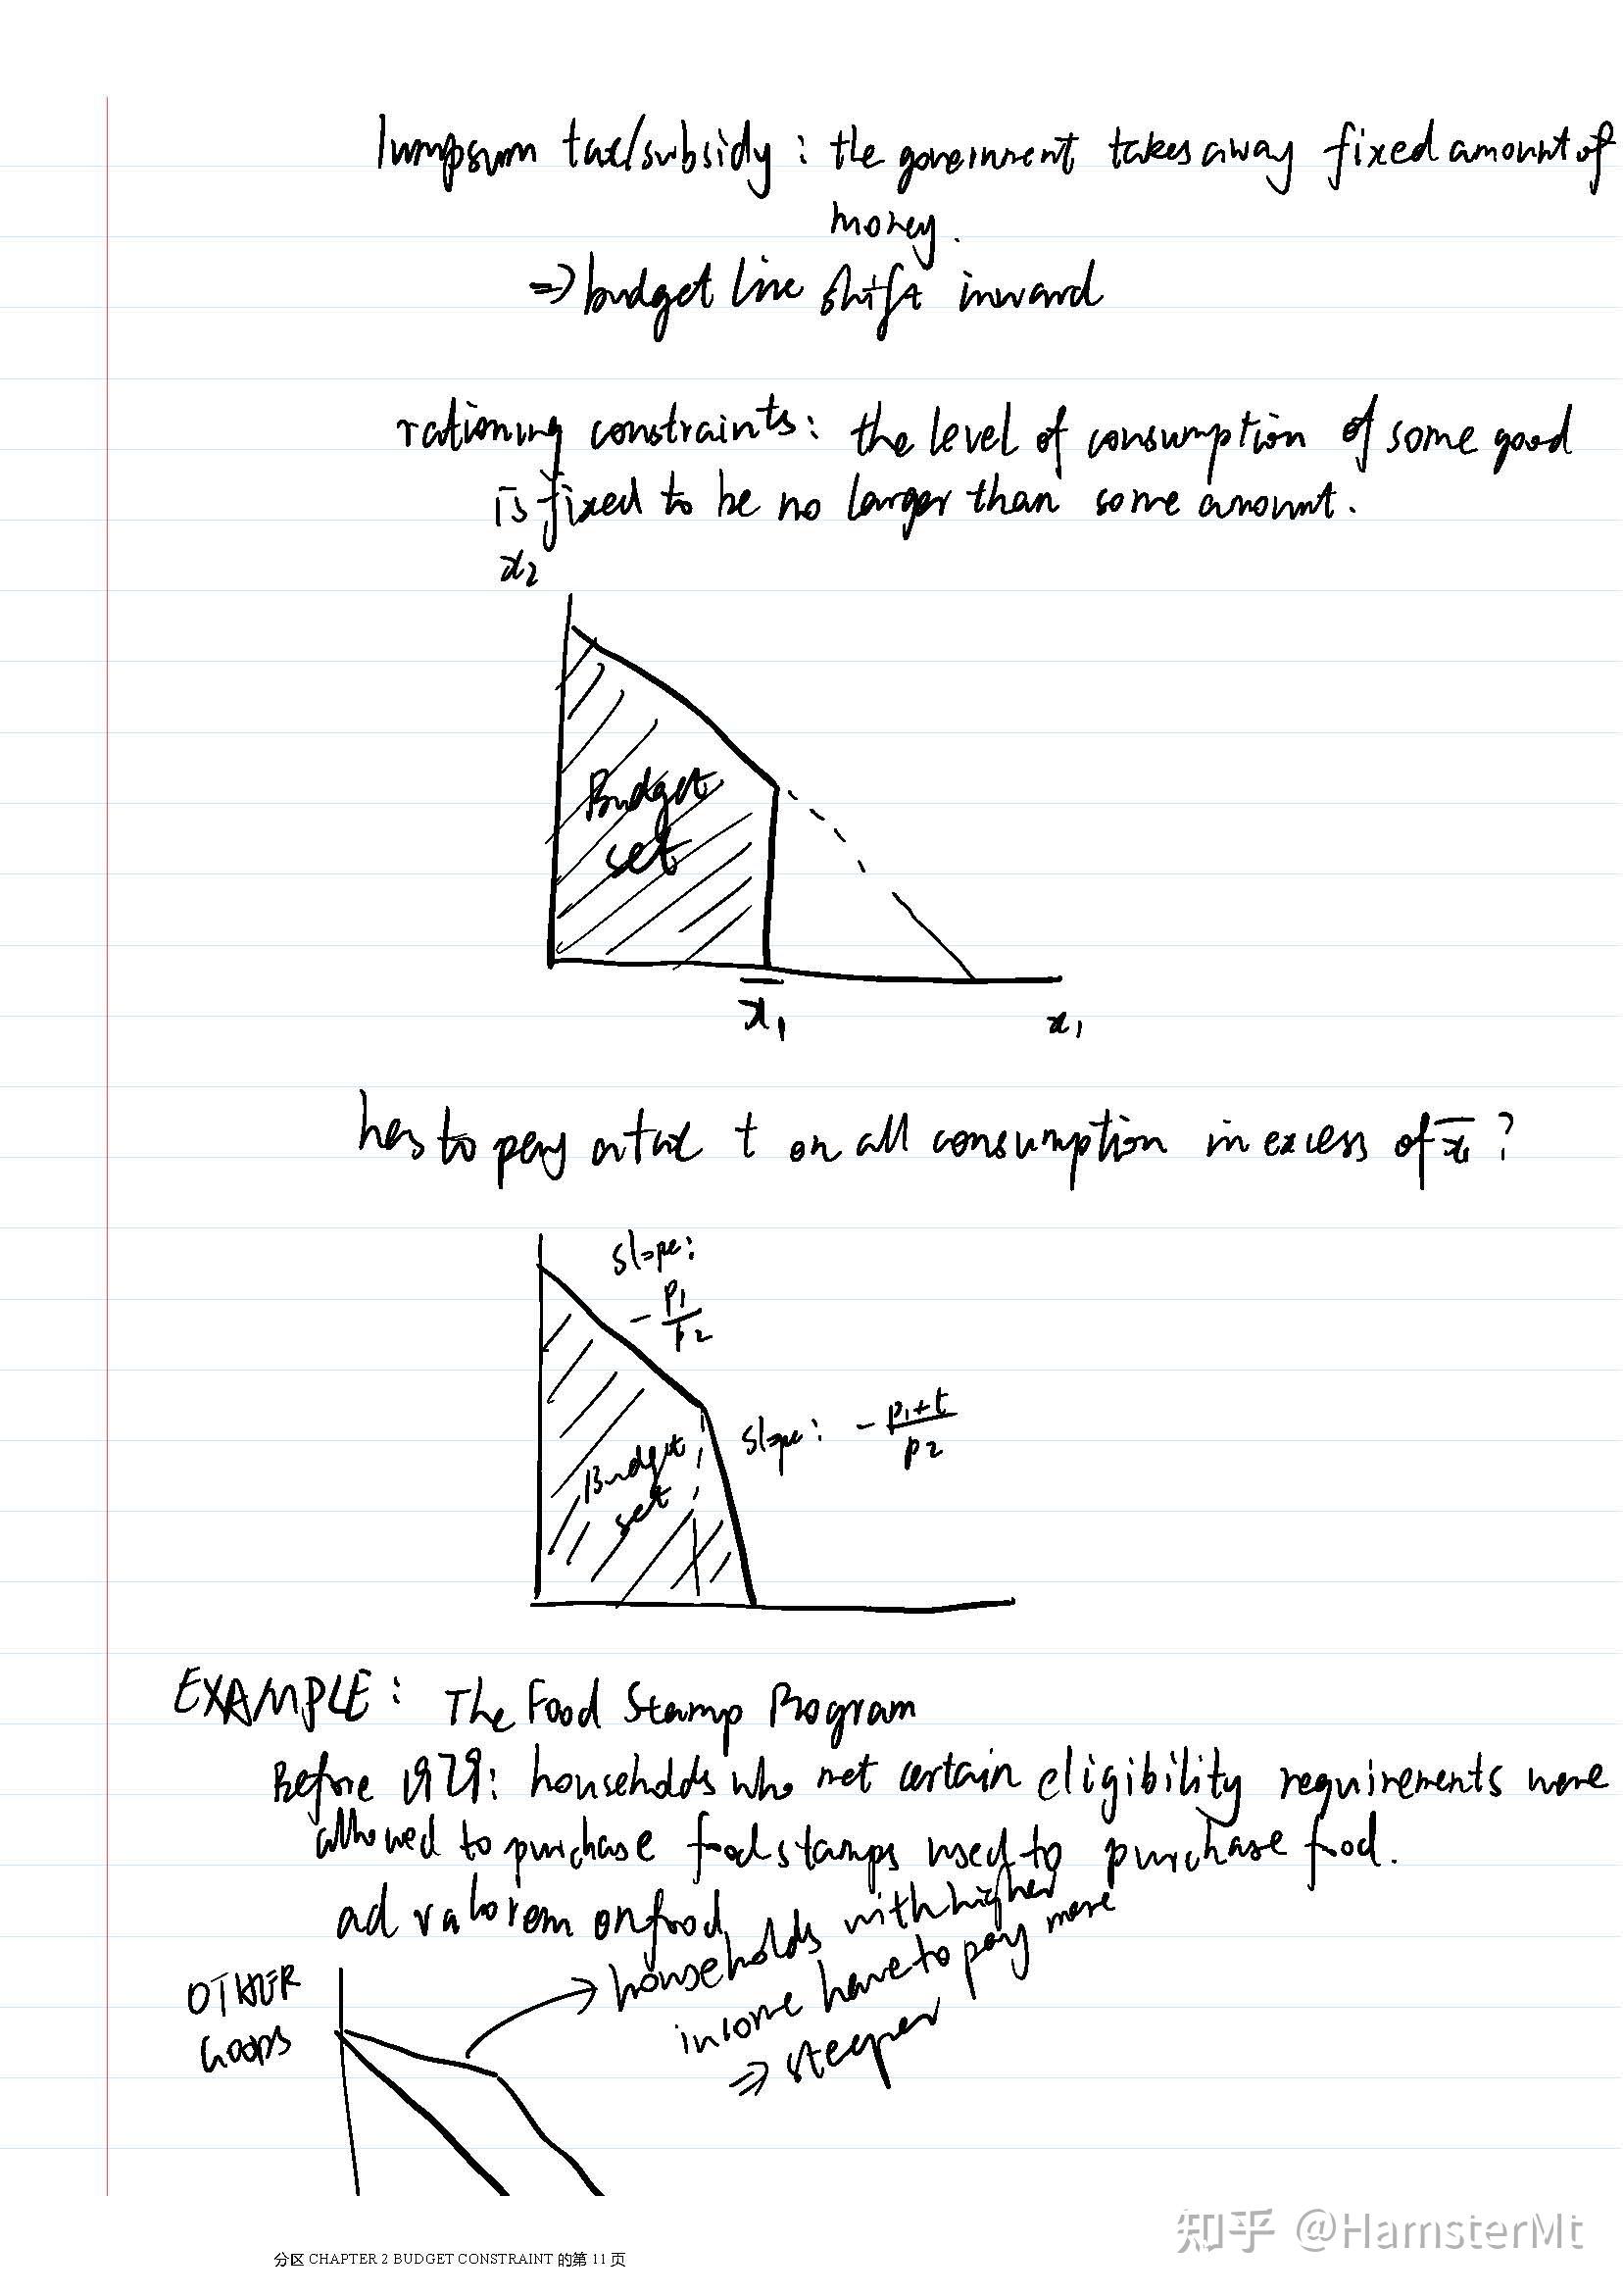 lumpsum tax/subsidy : the government takes away fixed amount of
money.
⇒ budget line shift inward
rationing constraints: the level of consumption of some good
is fixed to be no larger than some amount.
x₂
Budget
set
x̄₁
x₁
has to pay a tax t on all consumption in excess of x̄₁ ?
slope:
- p₁/p₂
slope: - p₁+t/p₂
Budget
set
EXAMPLE: The Food Stamp Program
Before 1979: households who met certain eligibility requirements were
allowed to purchase food stamps used to purchase food.
ad valorem on food
households with higher
income have to pay more
⇒ steeper
OTHER
GOODS
知乎 @HamsterMt
分区 CHAPTER 2 BUDGET CONSTRAINT 的第 11 页